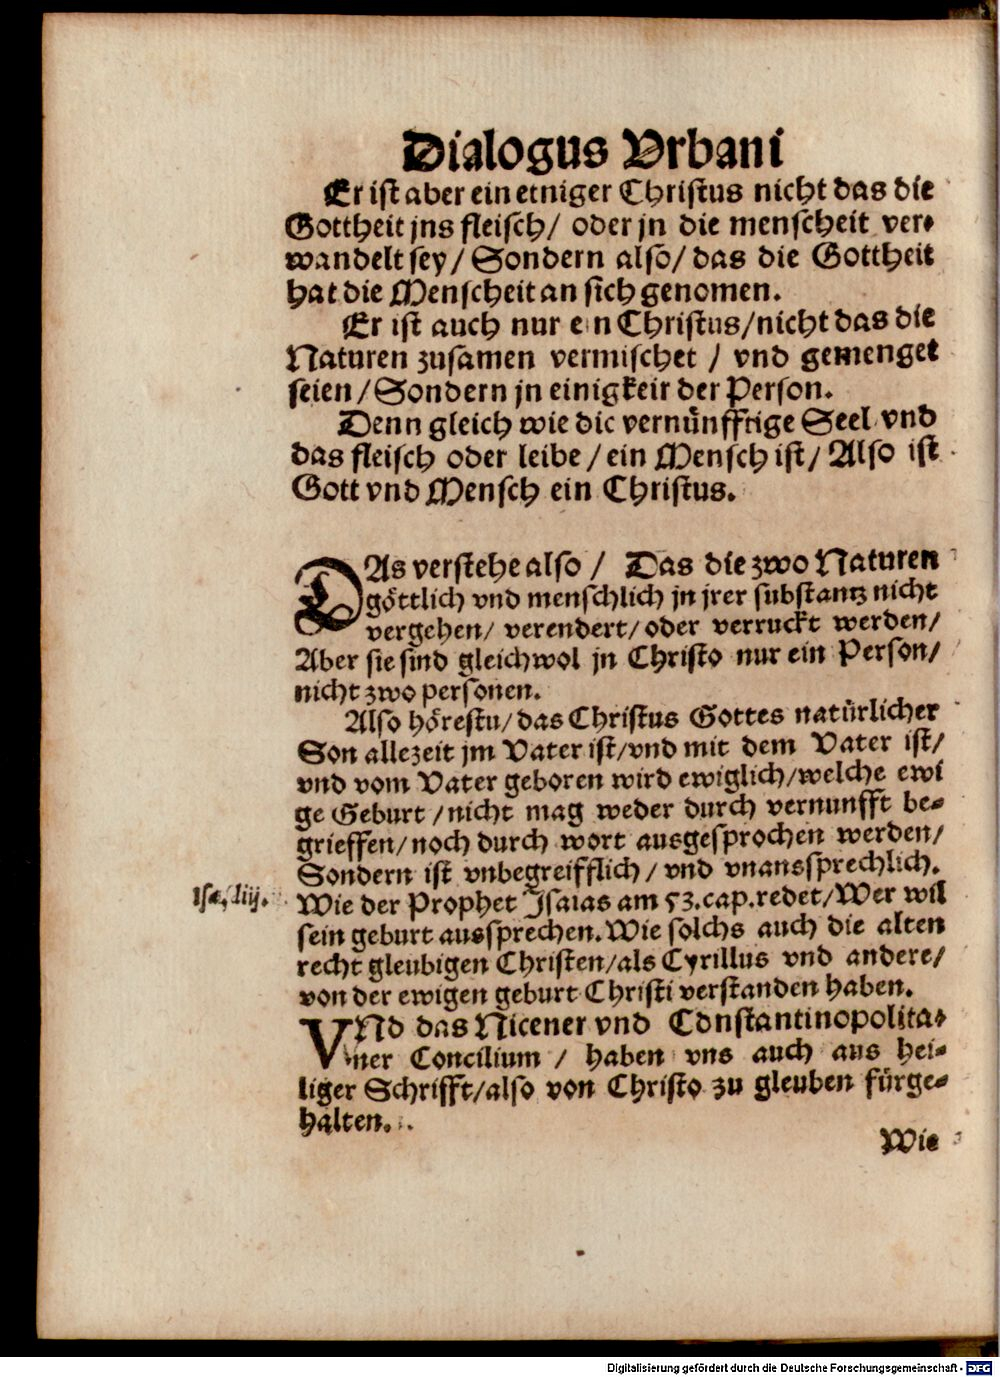 Dialogus Vrbani
Er ist aber ein einiger Christus nicht das die
Gottheit jns fleisch/ oder jn die menscheit ver-
wandelt sey/ Sondern also/ das die Gottheit
hat die Menscheit an sich genomen.
Er ist auch nur ein Christus/nicht das die
Naturen zusamen vermischet / vnd gemenget
seien/Sondern jn einigkeir der Person.
Denn gleich wie die vernünfftige Seel vnd
das fleisch oder leibe/ein Mensch ist/ Also ist
Gott vnd Mensch ein Christus.
DAs verstehe also / Das die zwo Naturen
göttlich vnd menschlich jn jrer substantz nicht
vergehen/ verendert/oder verruckt werden/
Aber sie sind gleichwol jn Christo nur ein Person/
nicht zwo personen.
Also hörestu/das Christus Gottes natürlicher
Son allezeit jm Vater ist/vnd mit dem Vater ist/
vnd vom Vater geboren wird ewiglich/welche ewi
ge Geburt /nicht mag weder durch vernunfft be-
grieffen/noch durch wort ausgesprochen werden/
Sondern ist vnbegreifflich/ vnd vnanssprechlich.
Isa. liij.
Wie der Prophet Isaias am 53.cap.redet/Wer wil
sein geburt aussprechen.Wie solchs auch die alten
recht gleubigen Christen/als Cyrillus vnd andere/
von der ewigen geburt Christi verstanden haben.
VNd das Nicener vnd Constantinopolita-
ner Concilium / haben vns auch aus hei-
liger Schrifft/also von Christo zu gleuben fürge-
halten.
Wie
Digitalisierung gefördert durch die Deutsche Forschungsgemeinschaft - DFG